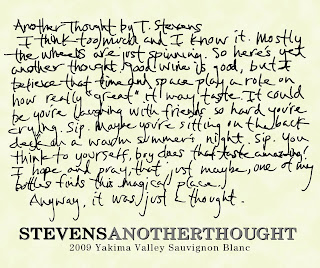 Another Thought by T. Stevens
I think too much and I know it. Mostly
the wheels are just spinning. So here's yet
another thought. Good wine is good, but I
believe that time and space play a role on
how really "great" it may taste. It could
be you're laughing with friends so hard you're
crying. Sip. Maybe you're sitting on the back
deck on a warm summer's night. Sip. You
think to yourself, boy does that taste amazing!
I hope and pray, that just maybe, one of my
bottles finds this magical place.
Anyway, it was just a thought.
STEVENSANOTHERTHOUGHT
2009 Yakima Valley Sauvignon Blanc